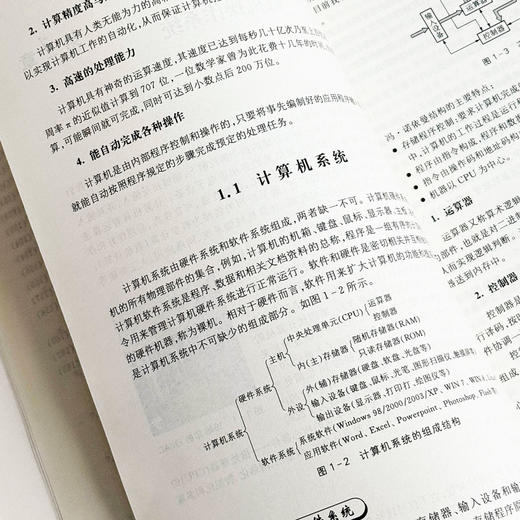 2. 计算精度高
计算机具有人类无能为力的高
以实现计算机工作的自动化,从而保证计算机
3. 高速的处理能力
计算机具有神奇的运算速度,其速度已达到每秒几十亿次乃至上
周率 π 的近似值计算到 707 位,一位数学家曾为此花费十几年的时间,
算,可能瞬间就可完成,同时可达到小数点后 200 万位。
4. 能自动完成各种操作
计算机是由内部程序控制和操作的,只要将事先编制好的应用程序
就能自动按照程序规定的步骤完成预定的处理任务。
1.1 计算机系统
计算机系统由硬件系统和软件系统组成,两者缺一不可。计算机硬件
机的所有物理部件的集合,例如,计算机的机箱、键盘、鼠标、显示器、主板
计算机软件系统是程序、数据和相关文档资料的总称,程序是一组有序的
令用来管理计算机硬件系统进行正常运行。软件和硬件是密切相关并互
的硬件机器,称为裸机。相对于硬件而言,软件用来扩大计算机的功能和
是计算机系统中不可缺少的组成部分。如图 1-2 所示。
计算机系统
硬件系统
主机
中央处理单元(CPU)
运算器
控制器
内(主)存储器
随机存储器(RAM)
只读存储器(ROM)
外设
外(辅)存储器(硬盘、软盘、光盘等)
输入设备(键盘、鼠标、光笔、图形扫描仪、
输出设备(显示器、打印机、绘图仪等)
软件系统
系统软件(Windows 98/2000/2003/XP、WIN 7、WIN
应用软件(Word、Excel、Powerpoint、Photoshop、Flash
图 1-2 计算机系统的组成结构
件系统
输入设备
运算器
控制器
图 1-3
冯·诺依曼结构的主要特点:
存储程序控制,要求计算机完成
中,计算机的工作过程是运行
程序由指令构成,程序和数
指令由操作码和地址码构
机器以 CPU 为中心。
1. 运算器
运算器又称算术逻辑
部件,也就是对二进
从而实现逻辑判断。
当达到内存中。
2. 控制器
控制器
行译码,按
件协调一
存储器、输入设备和
存储程序原